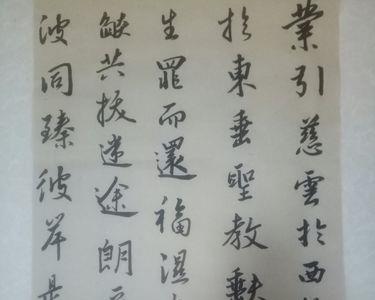 業引慈雲於西
於東垂聖教缺
生罪而還福濕
燄共拔迷途朗
波同臻彼岸是